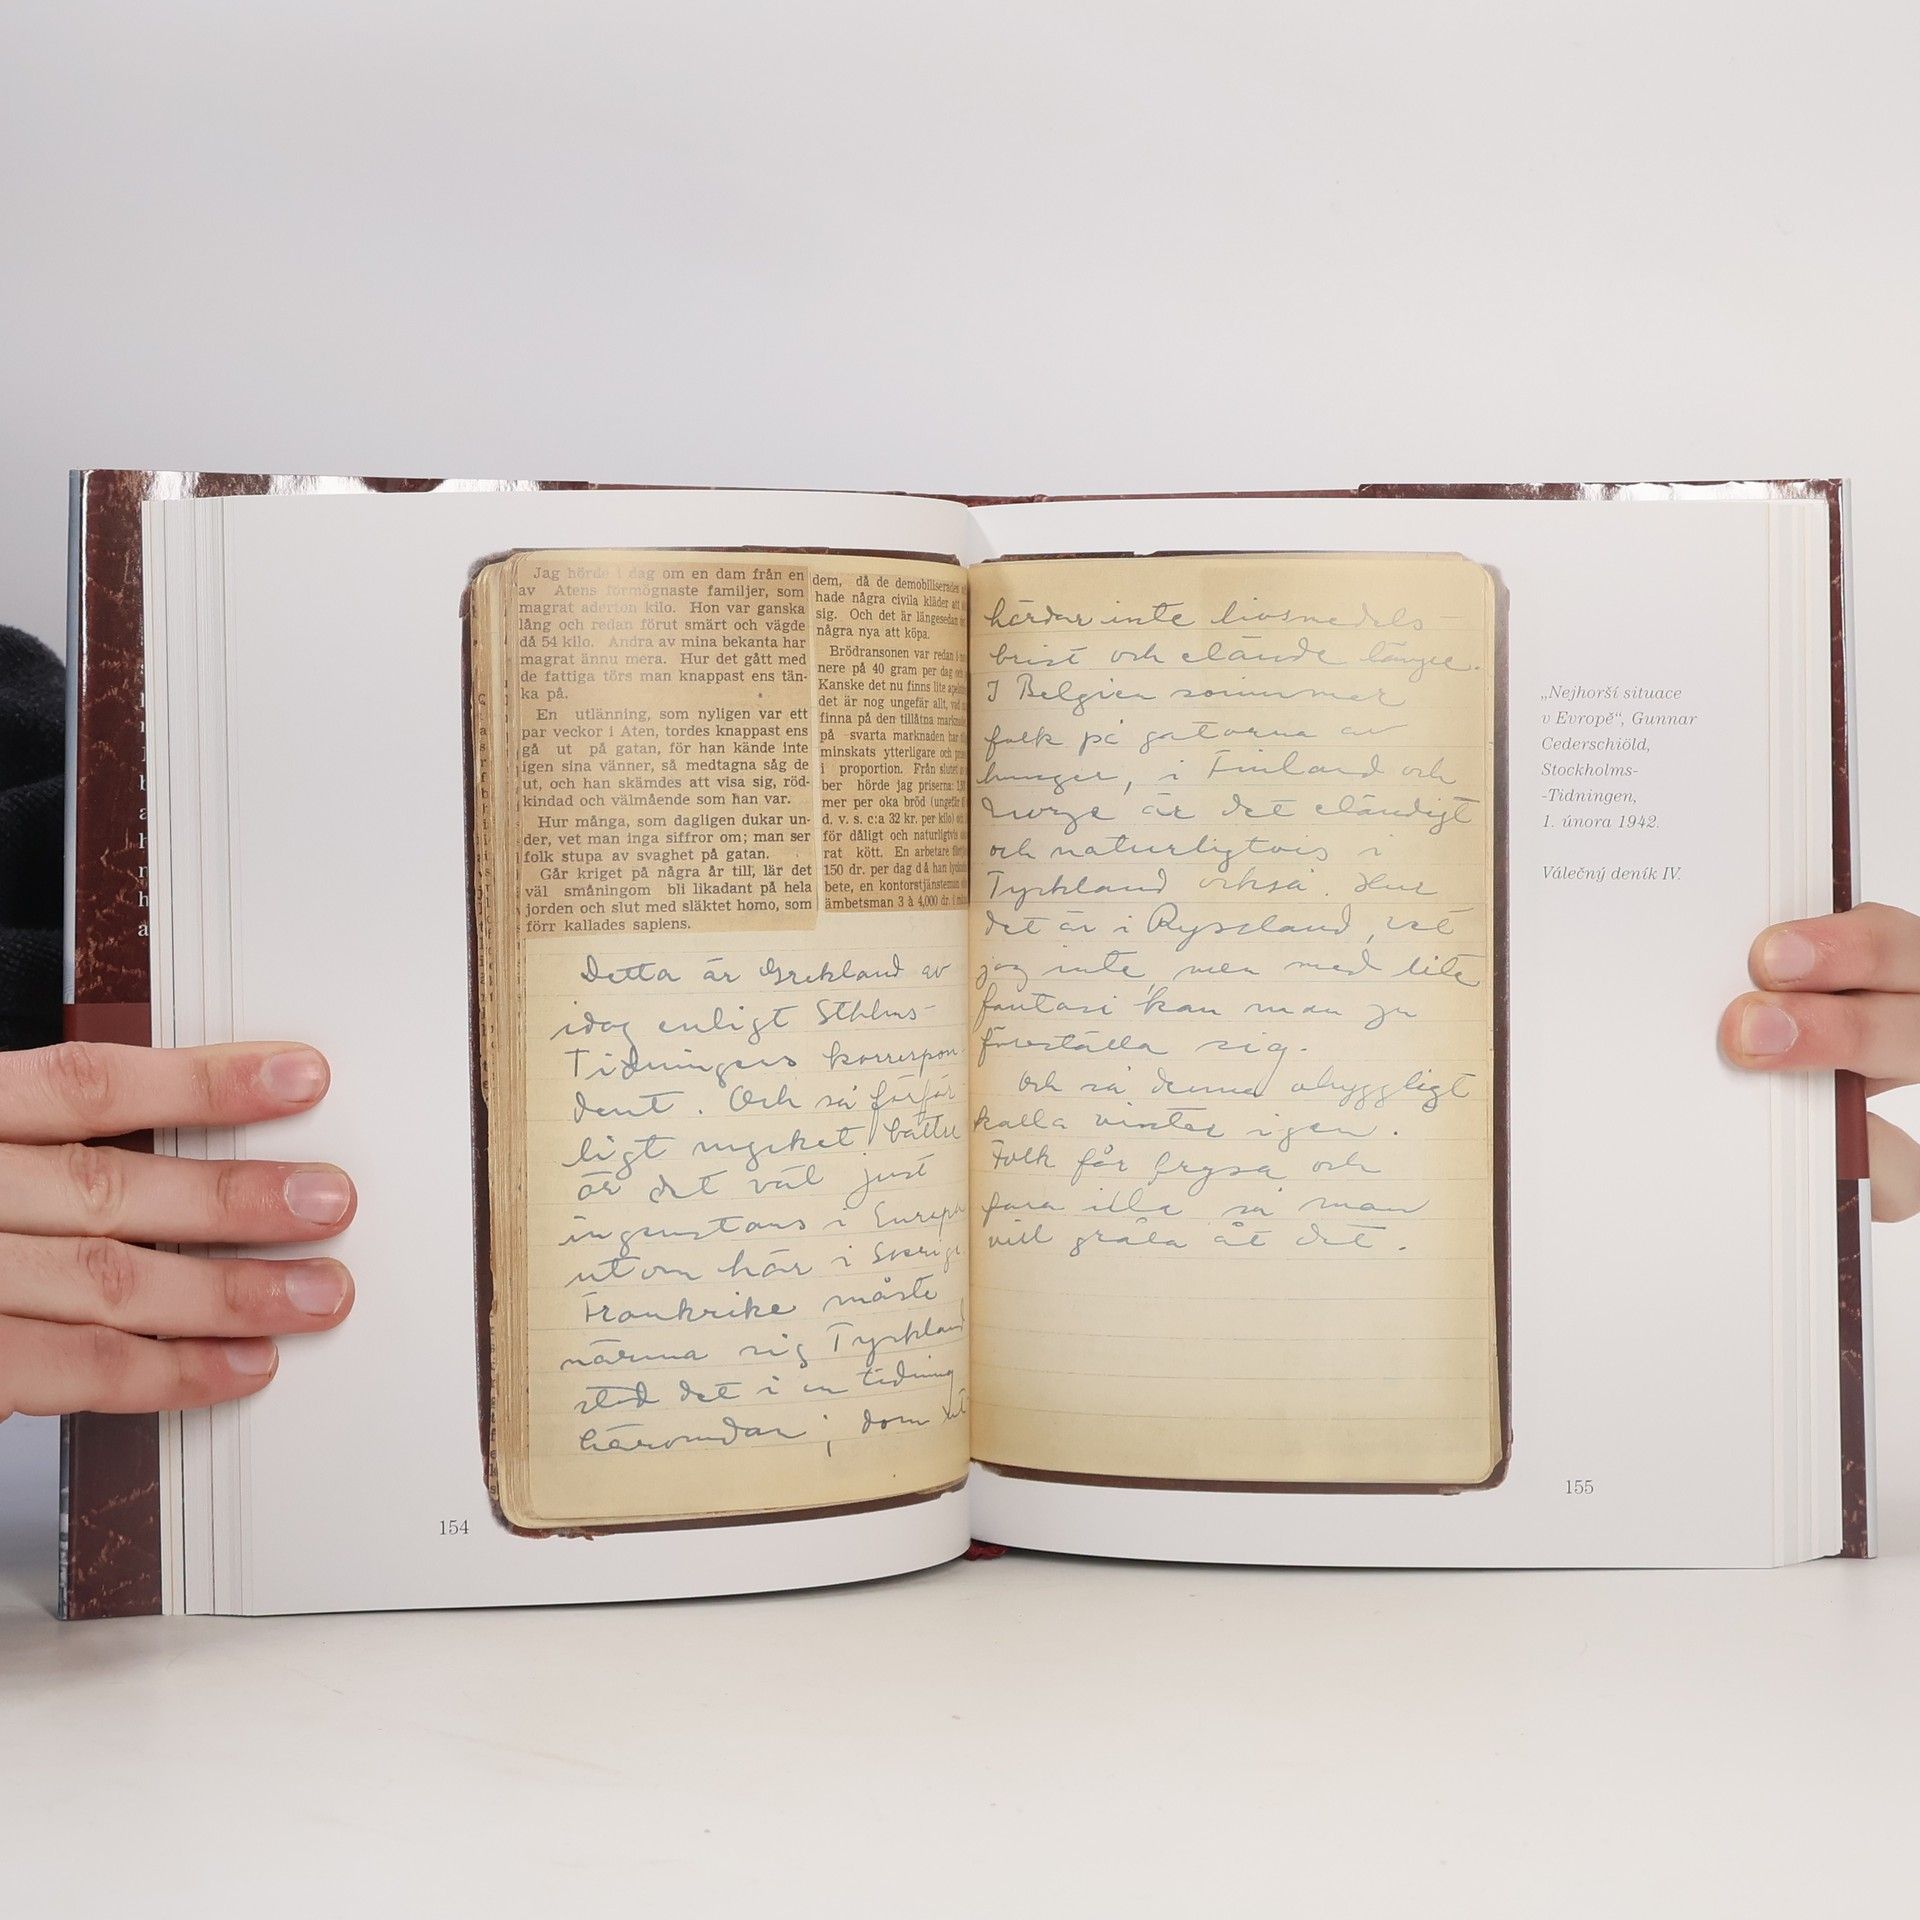 Jag hörde i dag om en dam från en
av Atens förmögnaste familjer, som
magrat aderton kilo. Hon var ganska
lång och redan förut smärt och vägde
då 54 kilo. Andra av mina bekanta har
magrat ännu mera. Hur det gått med
de fattiga törs man knappast ens tän-
ka på.
En utlänning, som nyligen var ett
par veckor i Aten, tordes knappast ens
gå ut på gatan, för han kände inte
igen sina vänner, så medtagna såg de
ut, och han skämdes att visa sig, röd-
kindad och välmående som han var.
Hur många, som dagligen dukar un-
der, vet man inga siffror om; man ser
folk stupa av svaghet på gatan.
Går kriget på några år till, lär det
väl småningom bli likadant på hela
jorden och slut med släktet homo, som
förr kallades sapiens.
dem, då de demobiliserades
hade några civila kläder att
sig. Och det är längesedan
några nya att köpa.
Brödransonen var redan
nere på 40 gram per dag
Kanske det nu finns lite
det är nog ungefär allt, vad
finna på den tillåtna
på svarta marknaden har
minskats ytterligare och
i proportion. Från slutet
ber hörde jag priserna:
mer per oka bröd (ungefär
d. v. s. c:a 32 kr. per kilo)
för dåligt och naturligtvis
rat kött. En arbetare
150 dr. per dag då han
bete, en kontorstjänsteman
ämbetsman 3 à 4,000 dr. i
Detta är Grekland av
idag enligt Sthlms-
Tidningens korrespon-
dent. Och så förfär-
ligt mycket bättre
är det väl just
ingenstans i Europa
utom här i Sverige.
Frankrike måste
närma sig Tyskland
stod det i en tidning
häromdan; dom
härdar inte livsmedels-
brist och elände längre.
I Belgien svimmar
folk på gatorna av
hunger, i Finland och
Norge är det eländigt
och naturligtvis i
Tyskland också. Hur
det är i Ryssland, vet
jag inte, men med lite
fantasi kan man ju
föreställa sig.
Och så denna ohyggligt
kalla vinter igen.
Folk får frysa och
fara illa så man
vill gråta åt det.
„Nejhorší situace
v Evropě“, Gunnar
Cederschiöld,
Stockholms-
-Tidningen,
1. února 1942.
Válečný deník IV.
154
155